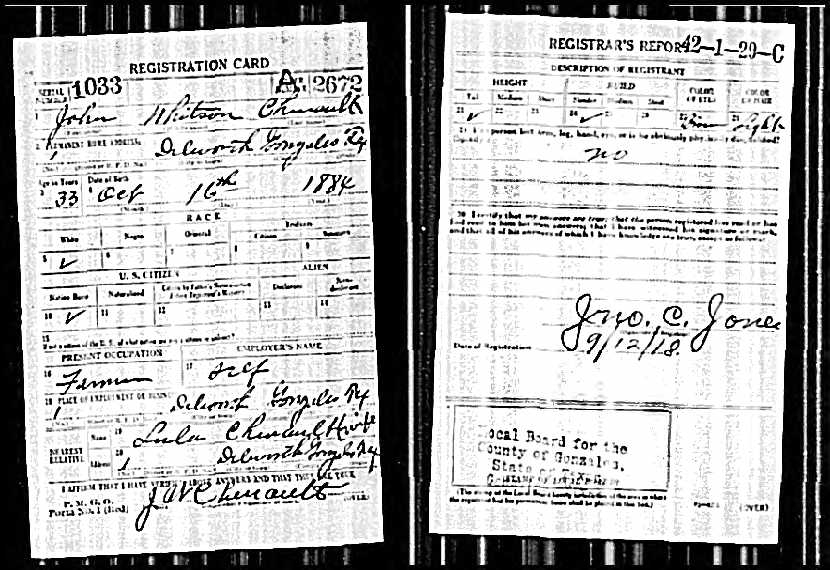 REGISTRATION CARD
SERIAL NUMBER 1033 A 2672
1 John Whitson Chenault
2 PERMANENT HOME ADDRESS
1 Dilworth Gonzales Tex
Age in Years Date of Birth
3 33 4 Oct 16th 1884
RACE
White Negro Oriental Indian
Citizen
5 ✓ 6 7 8 9
U. S. CITIZEN ALIEN
Native Born Naturalized Declarant
10 ✓ 11 12 13 14
15
PRESENT OCCUPATION EMPLOYER'S NAME
16 Farmer 17 Self
18 PLACE OF EMPLOYMENT OR BUSINESS
1 Dilworth Gonzales Tex
NEAREST RELATIVE Name 19 Lula Chenault Wife
Address 20 1 Dilworth Gonzales Tex
I AFFIRM THAT I HAVE VERIFIED ABOVE ANSWERS AND THAT THEY ARE TRUE
P. M. G. O.
Form No. 1 (Red) J W Chenault (OVER)
REGISTRAR'S REPORT 42-1-29-C
DESCRIPTION OF REGISTRANT
HEIGHT BUILD COLOR OF EYES COLOR OF HAIR
Tall Medium Short Slender Medium Stout
21 ✓ 22 23 24 ✓ 25 26 27 28 Light
29 Has person lost arm, leg, hand, eye, or is he obviously physically disqualified?
no
30 I certify that my answers are true; that the person registered has read or has
had read to him his own answers; that I have witnessed his signature or mark,
and that all of his answers of which I have knowledge are true, except as follows:
Jno. C. Jones
Date of Registration 9/12/18.
Local Board for the
County of Gonzales,
State of
(The stamp of the Local Board having jurisdiction of the area in which
the registrant has his permanent home shall be placed in this box.) (OVER)